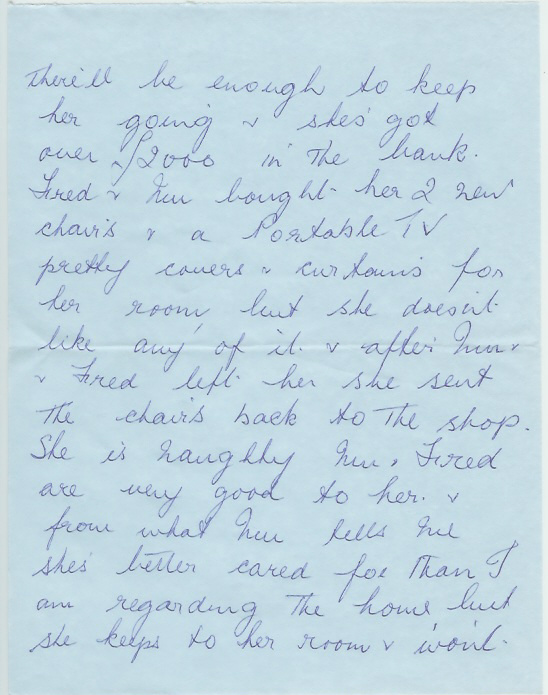 There'll be enough to keep
her going & she's got
over £2000 in the bank.
Fred & Mu bought her 2 new
chairs & a Portable TV
pretty covers & curtains for
her room, but she doesn't
like any of it. & after Mu &
& Fred left her she sent
the chairs back to the shop.
She is naughty Mu & Fred
are very good to her. &
from what Mu tells me
she's better cared for than I
am regarding the home but
she keeps to her room & won't